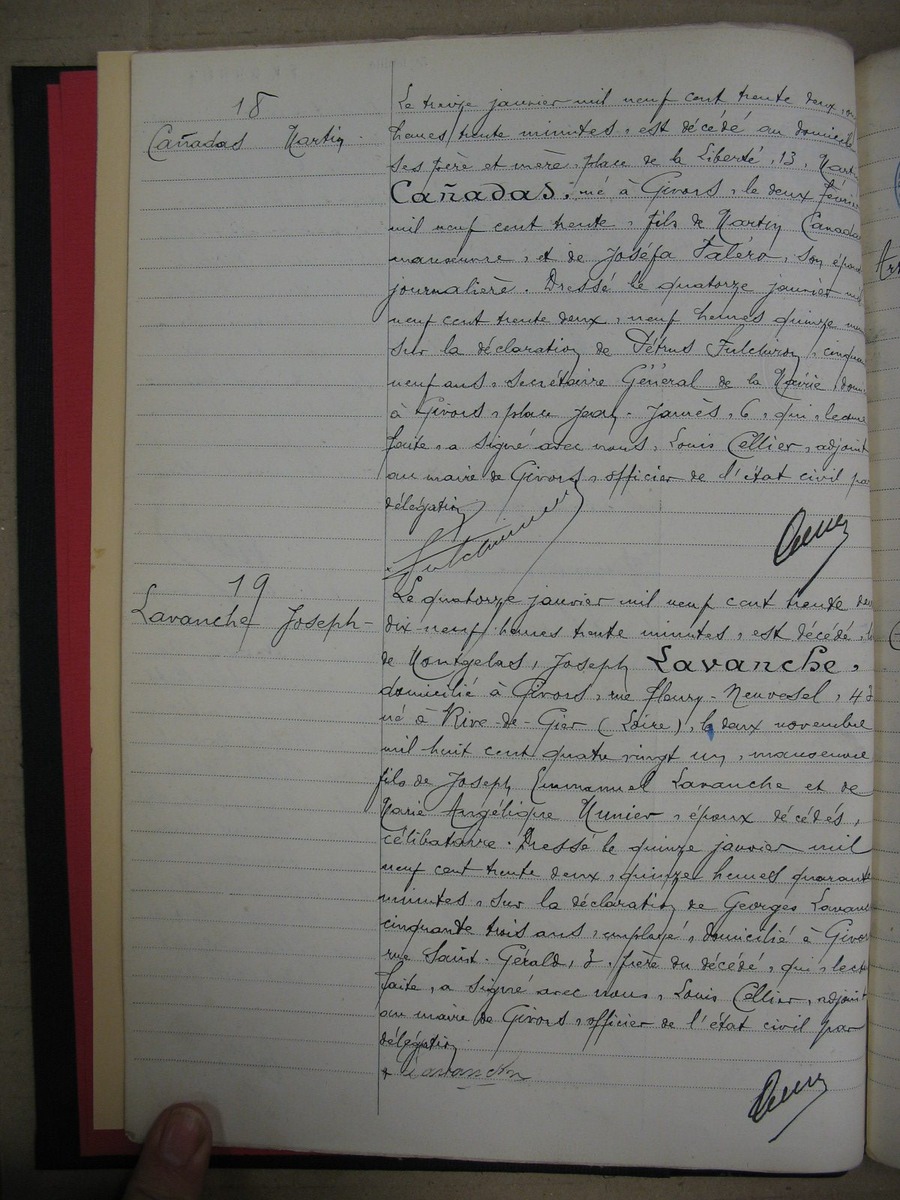 18
Cañadas Martin
Le treize janvier mil neuf cent trente deux,
heures trente minutes, est décédé au domicile
ses père et mère place de la Liberté, 13, Mart
Cañadas, né à Givors, le deux févri
mil neuf cent trente, fils de Martin Canada
manœuvre, et de Joséfa Faléro, son épou
journalière. Dressé le quatorze janvier mil
neuf cent trente deux, neuf heures quinze min
sur la déclaration de Pétrus Fulchiron, cinqua
neuf ans, secrétaire Général de la Mairie, domi
à Givors, place Jean-Jaurès, 6, qui, lecture
faite, a signé avec nous, Louis Cellier, adjoint
au maire de Givors, officier de l'état civil pa
délégation
Fulchiron
19
Lavanche Joseph-
Le quatorze janvier mil neuf cent trente deux
dix-neuf heures trente minutes, est décédé,
de Montgelas, Joseph Lavanche,
domicilié à Givors, rue Fleury-Neuvesel, 43
né à Rive-de-Gier (Loire), le deux novembre
mil huit cent quatre vingt un, manœuvre
fils de Joseph Emmanuel Lavanche et de
Marie Angélique Munier, époux décédés,
célibataire. Dressé le quinze janvier mil
neuf cent trente deux, quinze heures quarante
minutes, sur la déclaration de Georges Lavan
cinquante trois ans, employé, domicilié à Givor
rue Saint-Gérald, 3, frère du décédé, qui, lect
faite, a signé avec nous, Louis Cellier, adjoint
au maire de Givors, officier de l'état civil par
délégation
Lavanche